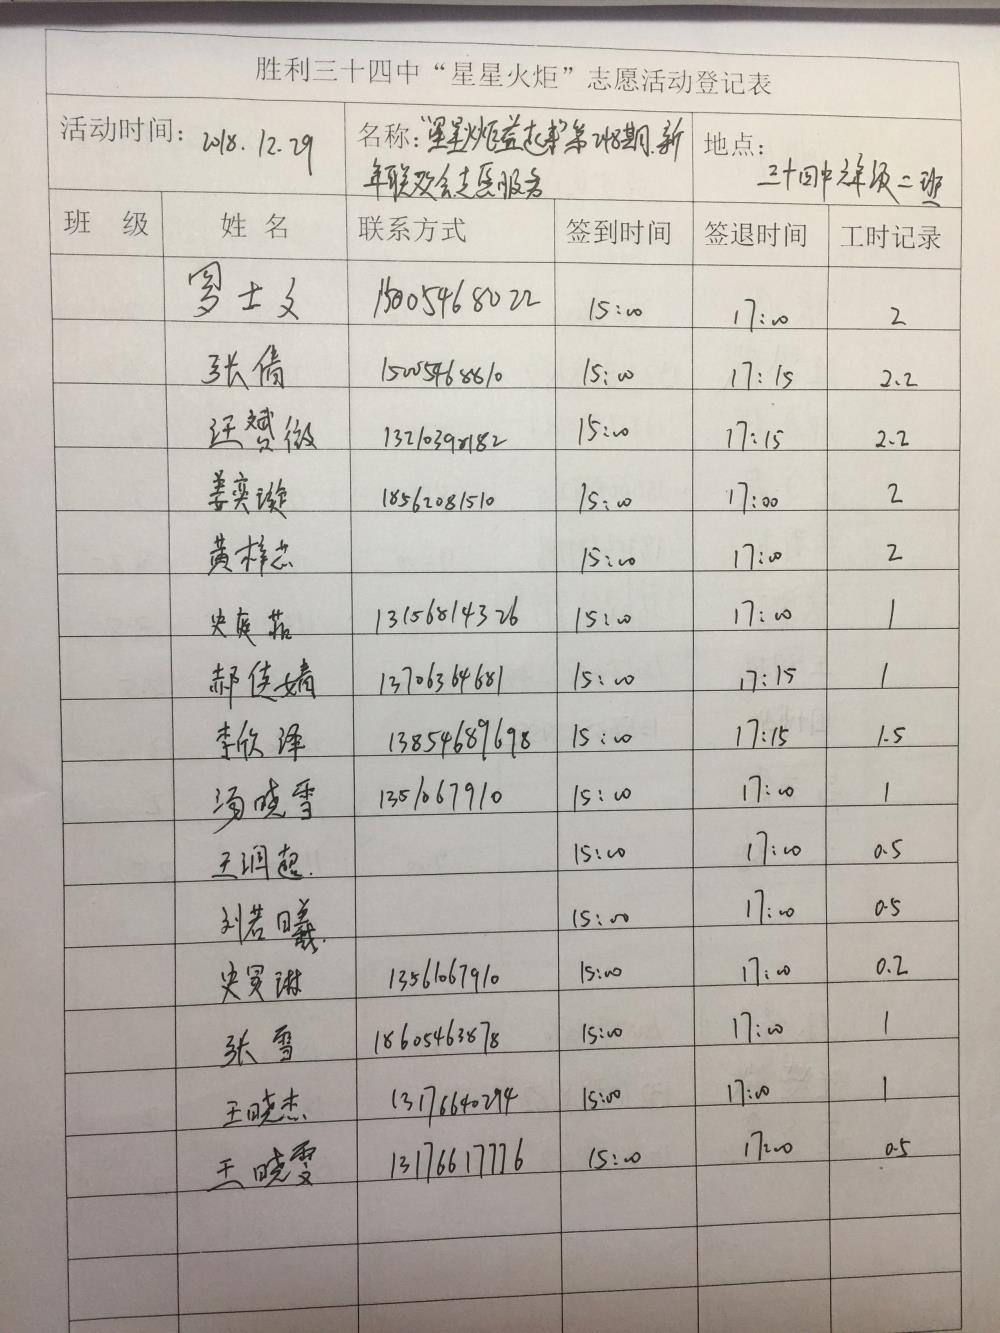 胜利三十四中“星星火炬”志愿活动登记表
活动时间：2018.12.29 名称：“星星火炬益起来”第248期.新 地点：
年联欢会志愿服务 三十四中六年级二班
班 级 姓 名 联系方式 签到时间 签退时间 工时记录
士文 15005468022 15:00 17:00 2
张倩 15005468810 15:00 17:15 2.2
汪赟微 15:00 17:15 2.2
姜奕璇 18562081510 15:00 17:00 2
黄梓芯 15:00 17:00 2
史庭茹 13156814326 15:00 17:00 1
郝倢婧 13706364681 15:00 17:15 1
李欣泽 13854689698 15:00 17:15 1.5
汤晓雪 1351067910 15:00 17:00 1
王润超. 15:00 17:00 0.5
刘若曦. 15:00 17:00 0.5
史琳 1356067910 15:00 17:00 0.2
张雪 18605463878 15:00 17:00 1
王晓杰 13176640294 15:00 17:00 1
王晓雯 13176617776 15:00 17:00 0.5